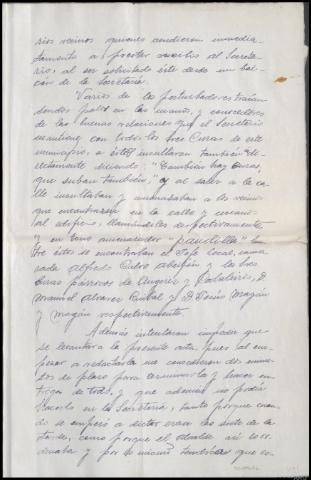 rios vecinos quienes acudieron inmedia-
tamente a prestar auxilio al Secreta-
rio, al ser solicitado éste desde un bal-
cón de la Secretaría.
Varios de los perturbadores traían
sendos palos en las manos, y conocedores
de las buenas relaciones que el Secretario
mantiene con todo los tres Curas de este
municipio, a éstos insultaron también di-
rectamente diciendo "También hay Curas,
que suban también," y al salir a la ca-
lle insultaban y amenazaban a los vecinos
que encontraron en la calle y
al edificio, llamándoles despectivamente
y en tono amenazador "pandilla"
tre éstos se encontraban el Jefe local, cama-
rada Alfredo Calvo y los tres
Curas párrocos de y D.
Manuel Alvarez y D. Jesús Magán
y Magán respectivamente.
Además intentaron impedir que
se levantara la presente acta, pues al em-
pezar a redactarla me concedieron dos minu-
tos de plazo para terminarla y hacer en-
trega de todo, y que además no podía
hacerlo en la Secretaría, tanto porque cuan-
do se empezó a dictar eran las siete de la
tarde, como porque el Alcalde así lo or-
denaba y por lo mismo tendría que